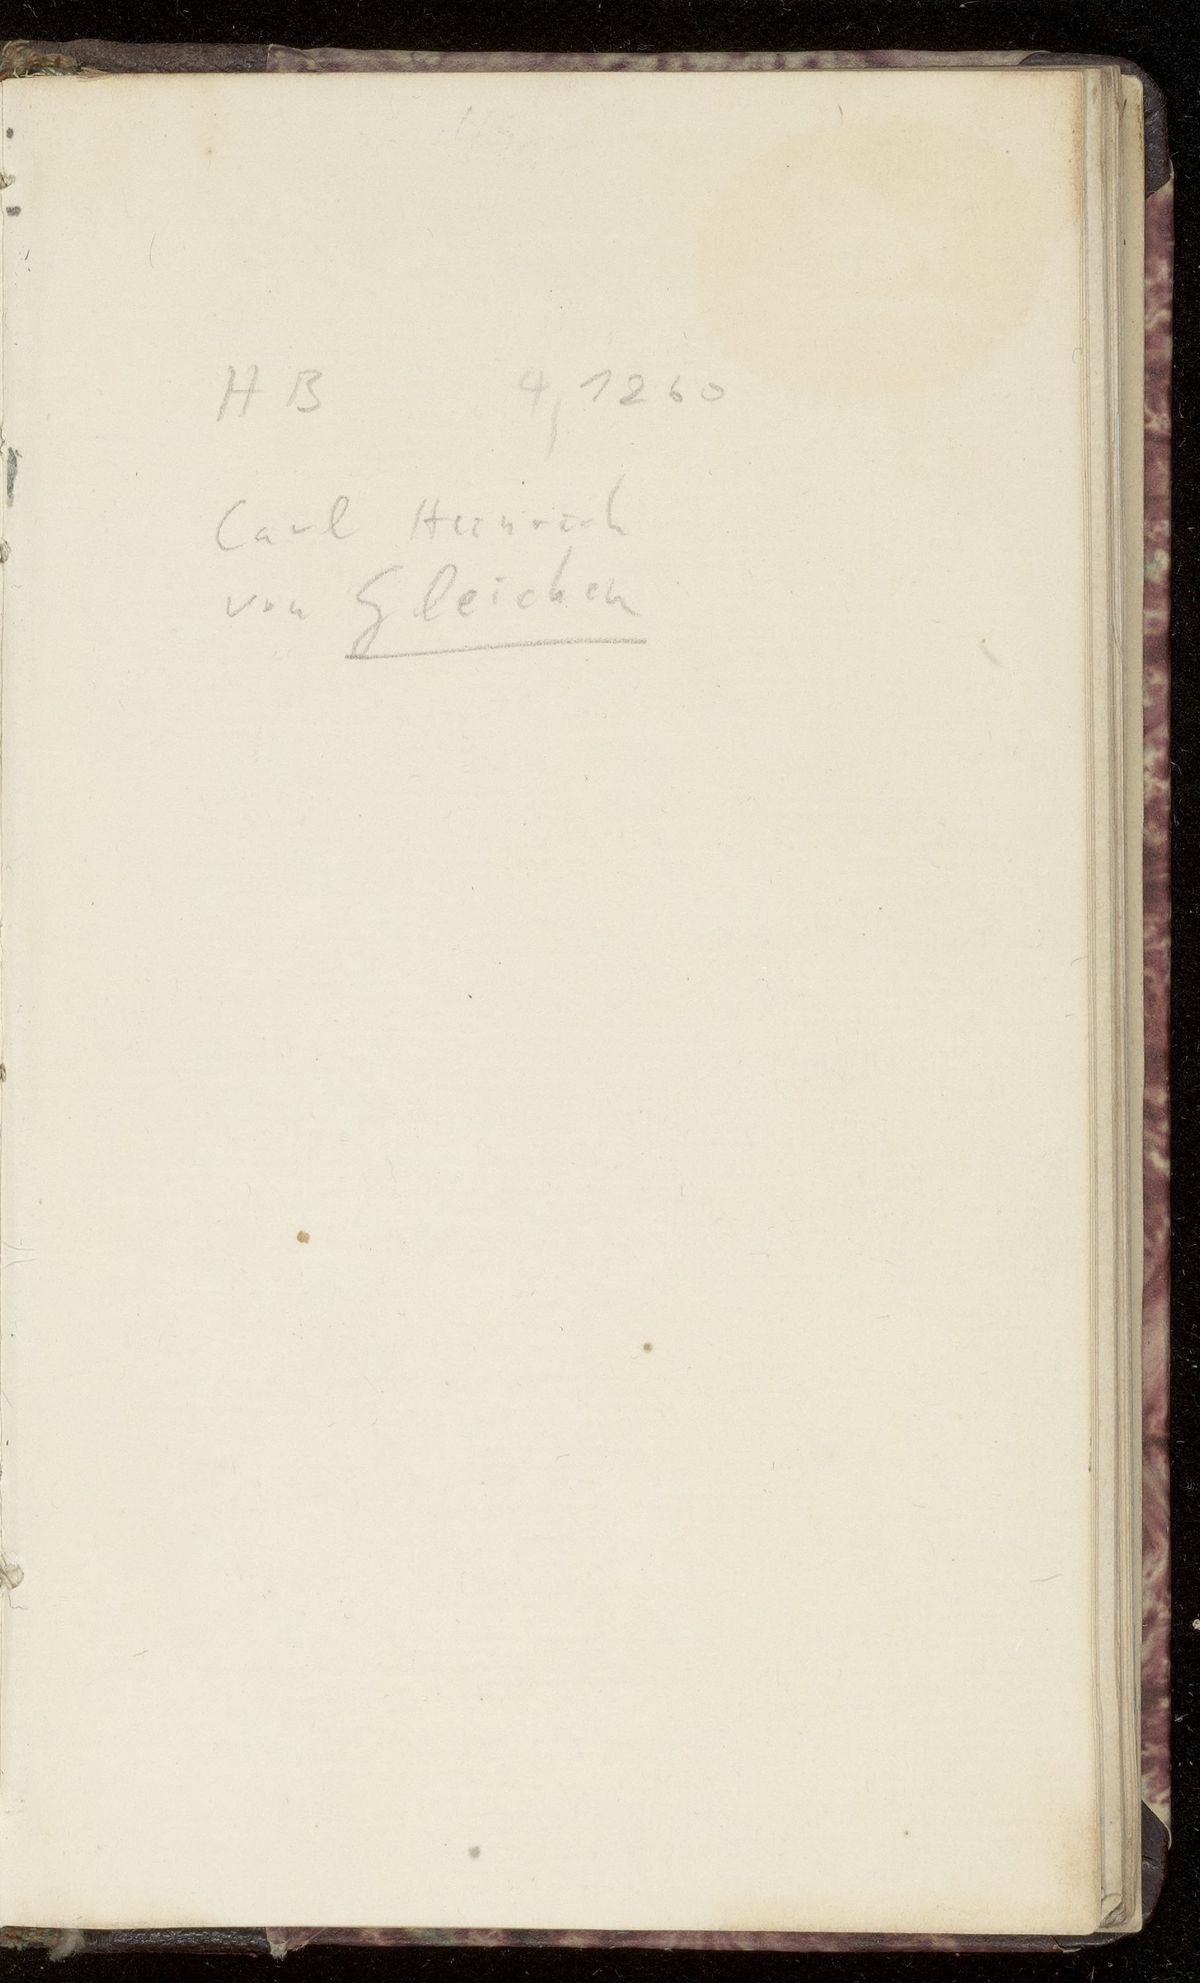 HB 4,1260
Carl Heinrich
von Gleichen